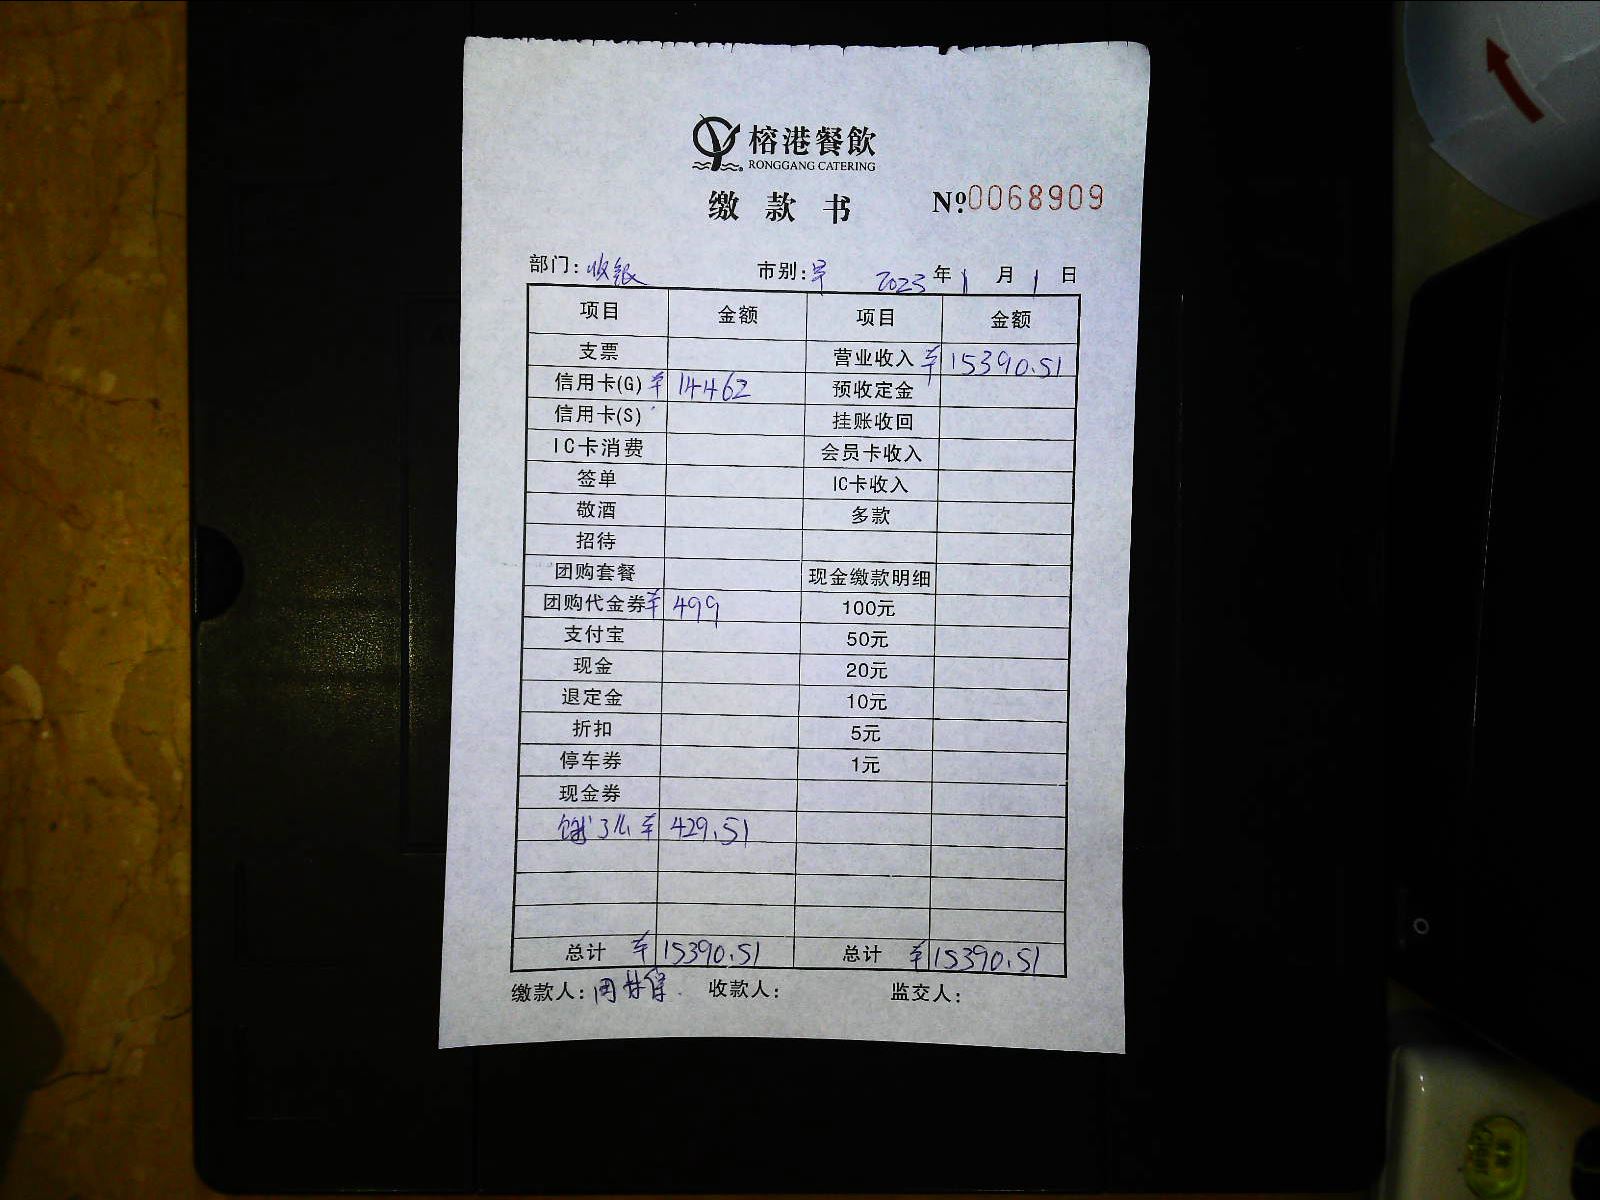 榕港餐飲
RONGGANG CATERING
缴款书 №0068909
部门：收银 市别：早 2023年1月1日
项目 金额 项目 金额
支票 营业收入 ¥15390.51
信用卡(G) ¥14462 预收定金
信用卡(S) 挂账收回
IC卡消费 会员卡收入
签单 IC卡收入
敬酒 多款
招待
团购套餐 现金缴款明细
团购代金券 ¥499 100元
支付宝 50元
现金 20元
退定金 10元
折扣 5元
停车券 1元
现金券
饿了么 ¥429.51
总计 ¥15390.51 总计 ¥15390.51
缴款人：周 收款人： 监交人：